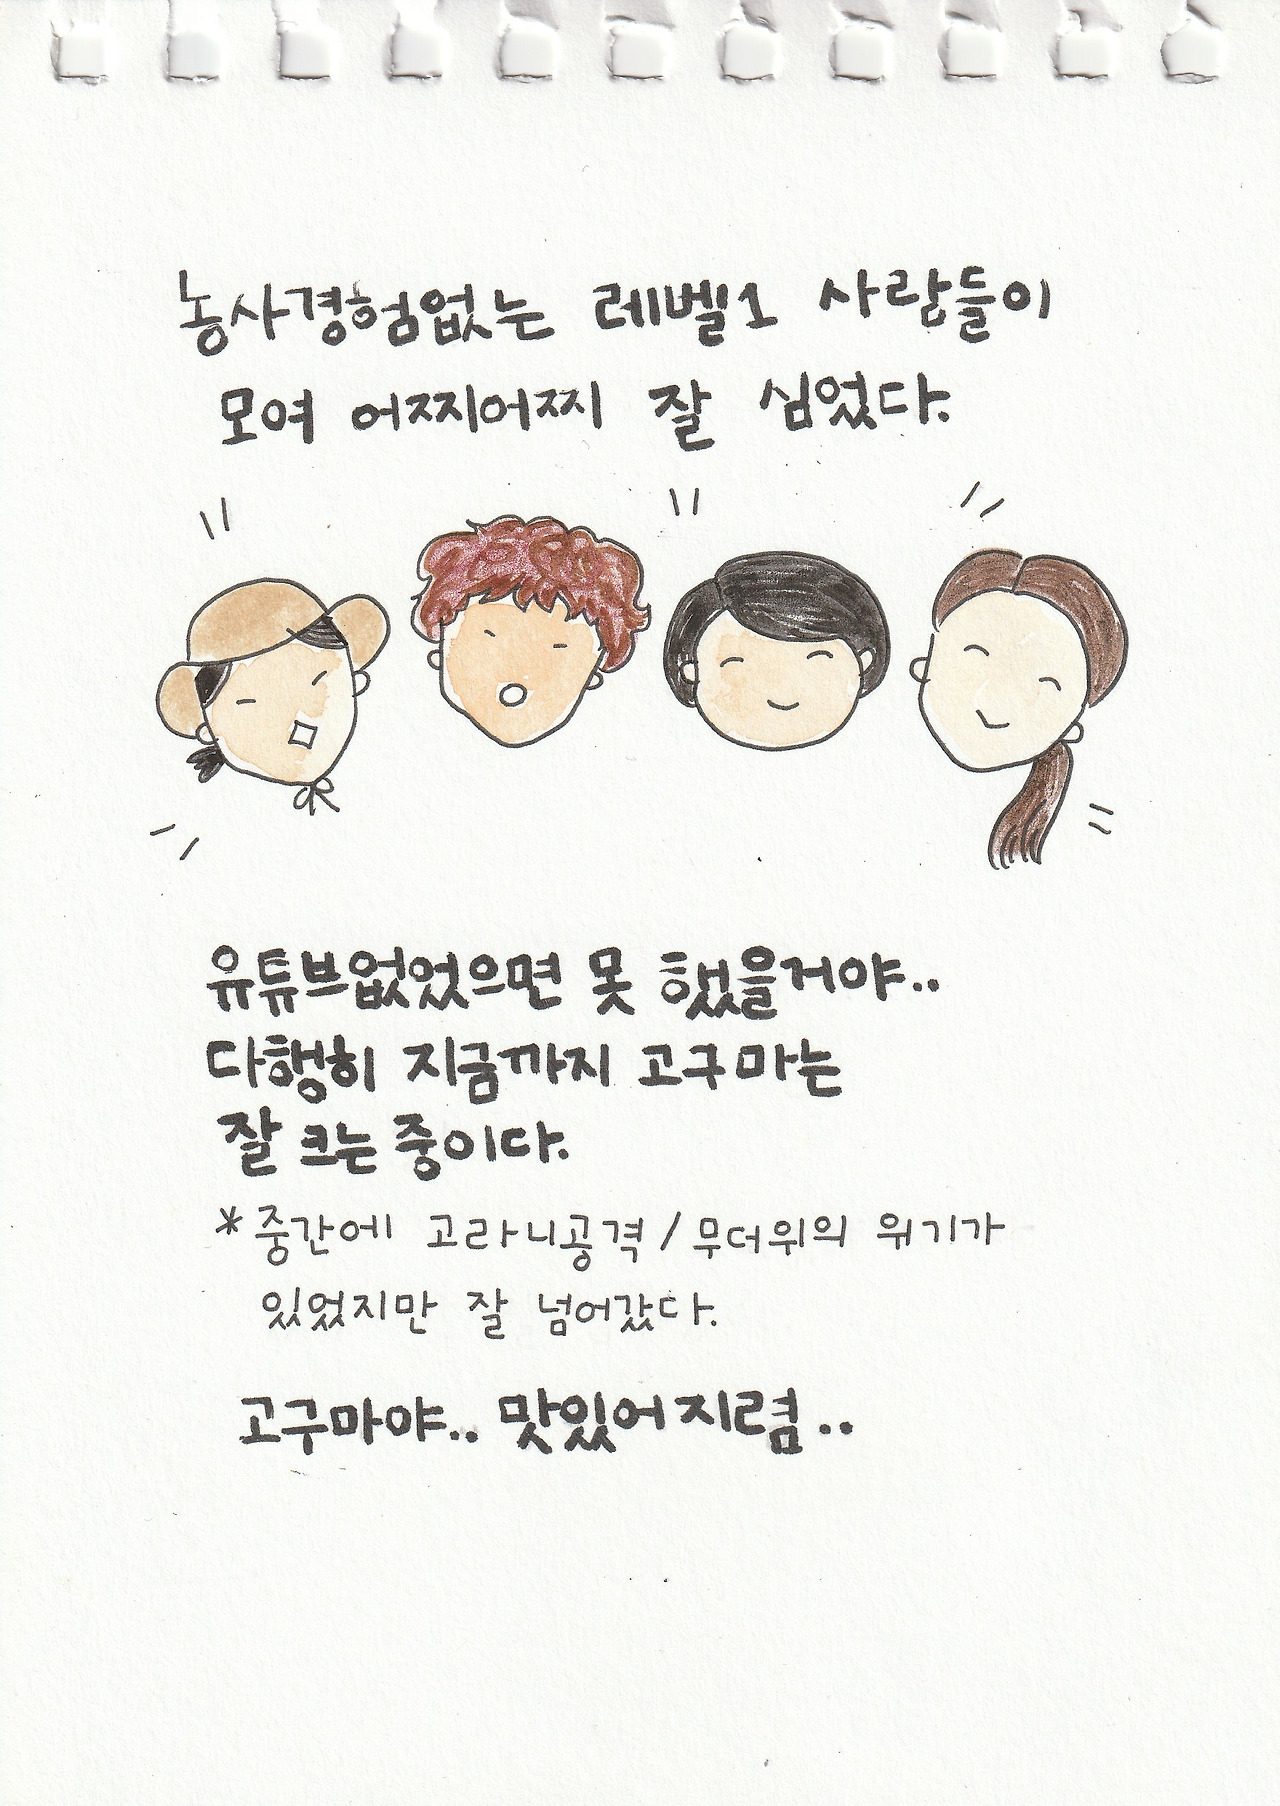 농사경험없는 레벨1 사람들이
모여 어찌어찌 잘 심었다.
유튜브없었으면 못 했을거야..
다행히 지금까지 고구마는
잘 크는 중이다.
*중간에 고라니공격/무더위의 위기가
있었지만 잘 넘어갔다.
고구마야.. 맛있어지렴..